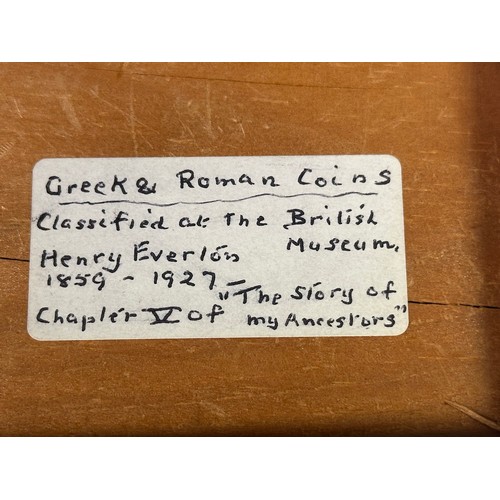 Greek & Roman Coins
Classified at the British
Museum.
Henry Everlón
1859 - 1927 -
"The story of
Chapter V of my Ancestors"